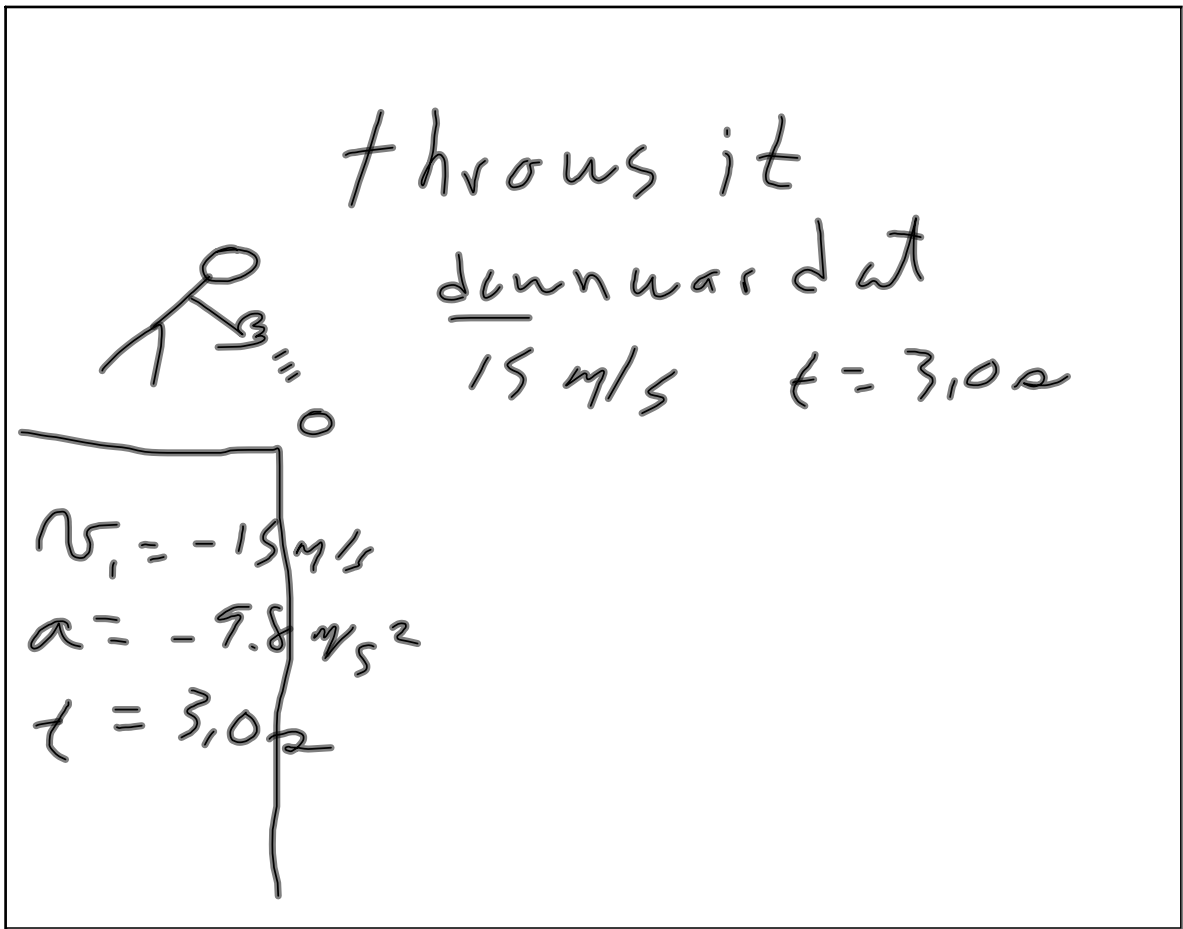 throws it
downward at
15 m/s t = 3.0 s
v₁ = -15 m/s
a = -9.8 m/s²
t = 3.0 s